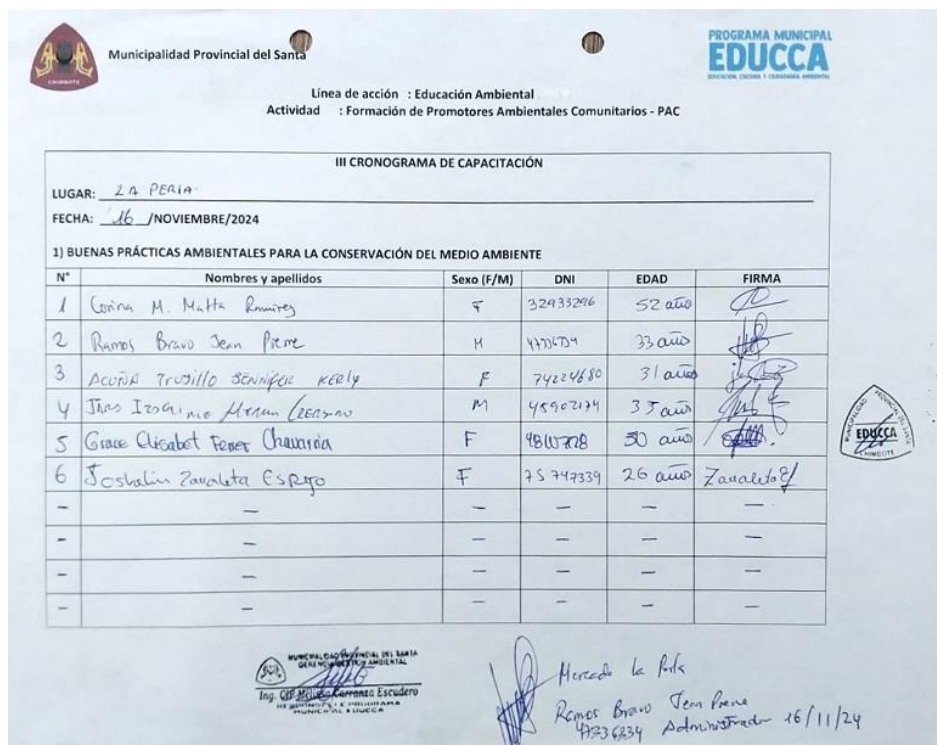 Municipalidad Provincial del Santa
CHIMBOTE
PROGRAMA MUNICIPAL
EDUCCA
EDUCACIÓN, CULTURA Y CIUDADANÍA AMBIENTAL
Línea de acción : Educación Ambiental
Actividad : Formación de Promotores Ambientales Comunitarios - PAC
III CRONOGRAMA DE CAPACITACIÓN
LUGAR: LA PERLA.
FECHA: 16 /NOVIEMBRE/2024
1) BUENAS PRÁCTICAS AMBIENTALES PARA LA CONSERVACIÓN DEL MEDIO AMBIENTE
N° Nombres y apellidos Sexo (F/M) DNI EDAD FIRMA
1 Corina M. Matta Ramirez F 32933296 52 año
2 Ramos Bravo Jean Pierre M 33 año
3 ACUÑA Trujillo JENNIFER KERLY F 74224680 31 años
4 M 45902174 35 año
5 Grace Elisabet Ferrer Chavarria F 30 año
6 Joshelin Zavaleta ESPEJO F 75747339 26 años Zavaleta E
– – – – – –
– – – – – –
– – – – – –
– – – – – –
MUNICIPALIDAD PROVINCIAL DEL SANTA
EDUCCA
CHIMBOTE
MUNICIPALIDAD PROVINCIAL DEL SANTA
GERENCIA GESTIÓN AMBIENTAL
Ing. CIP Melissa Carranza Escudero
RESPONSABLE PROGRAMA
MUNICIPAL EDUCCA
Mercado La Perla
Ramos Bravo Jean Pierre
Administrador 16/11/24